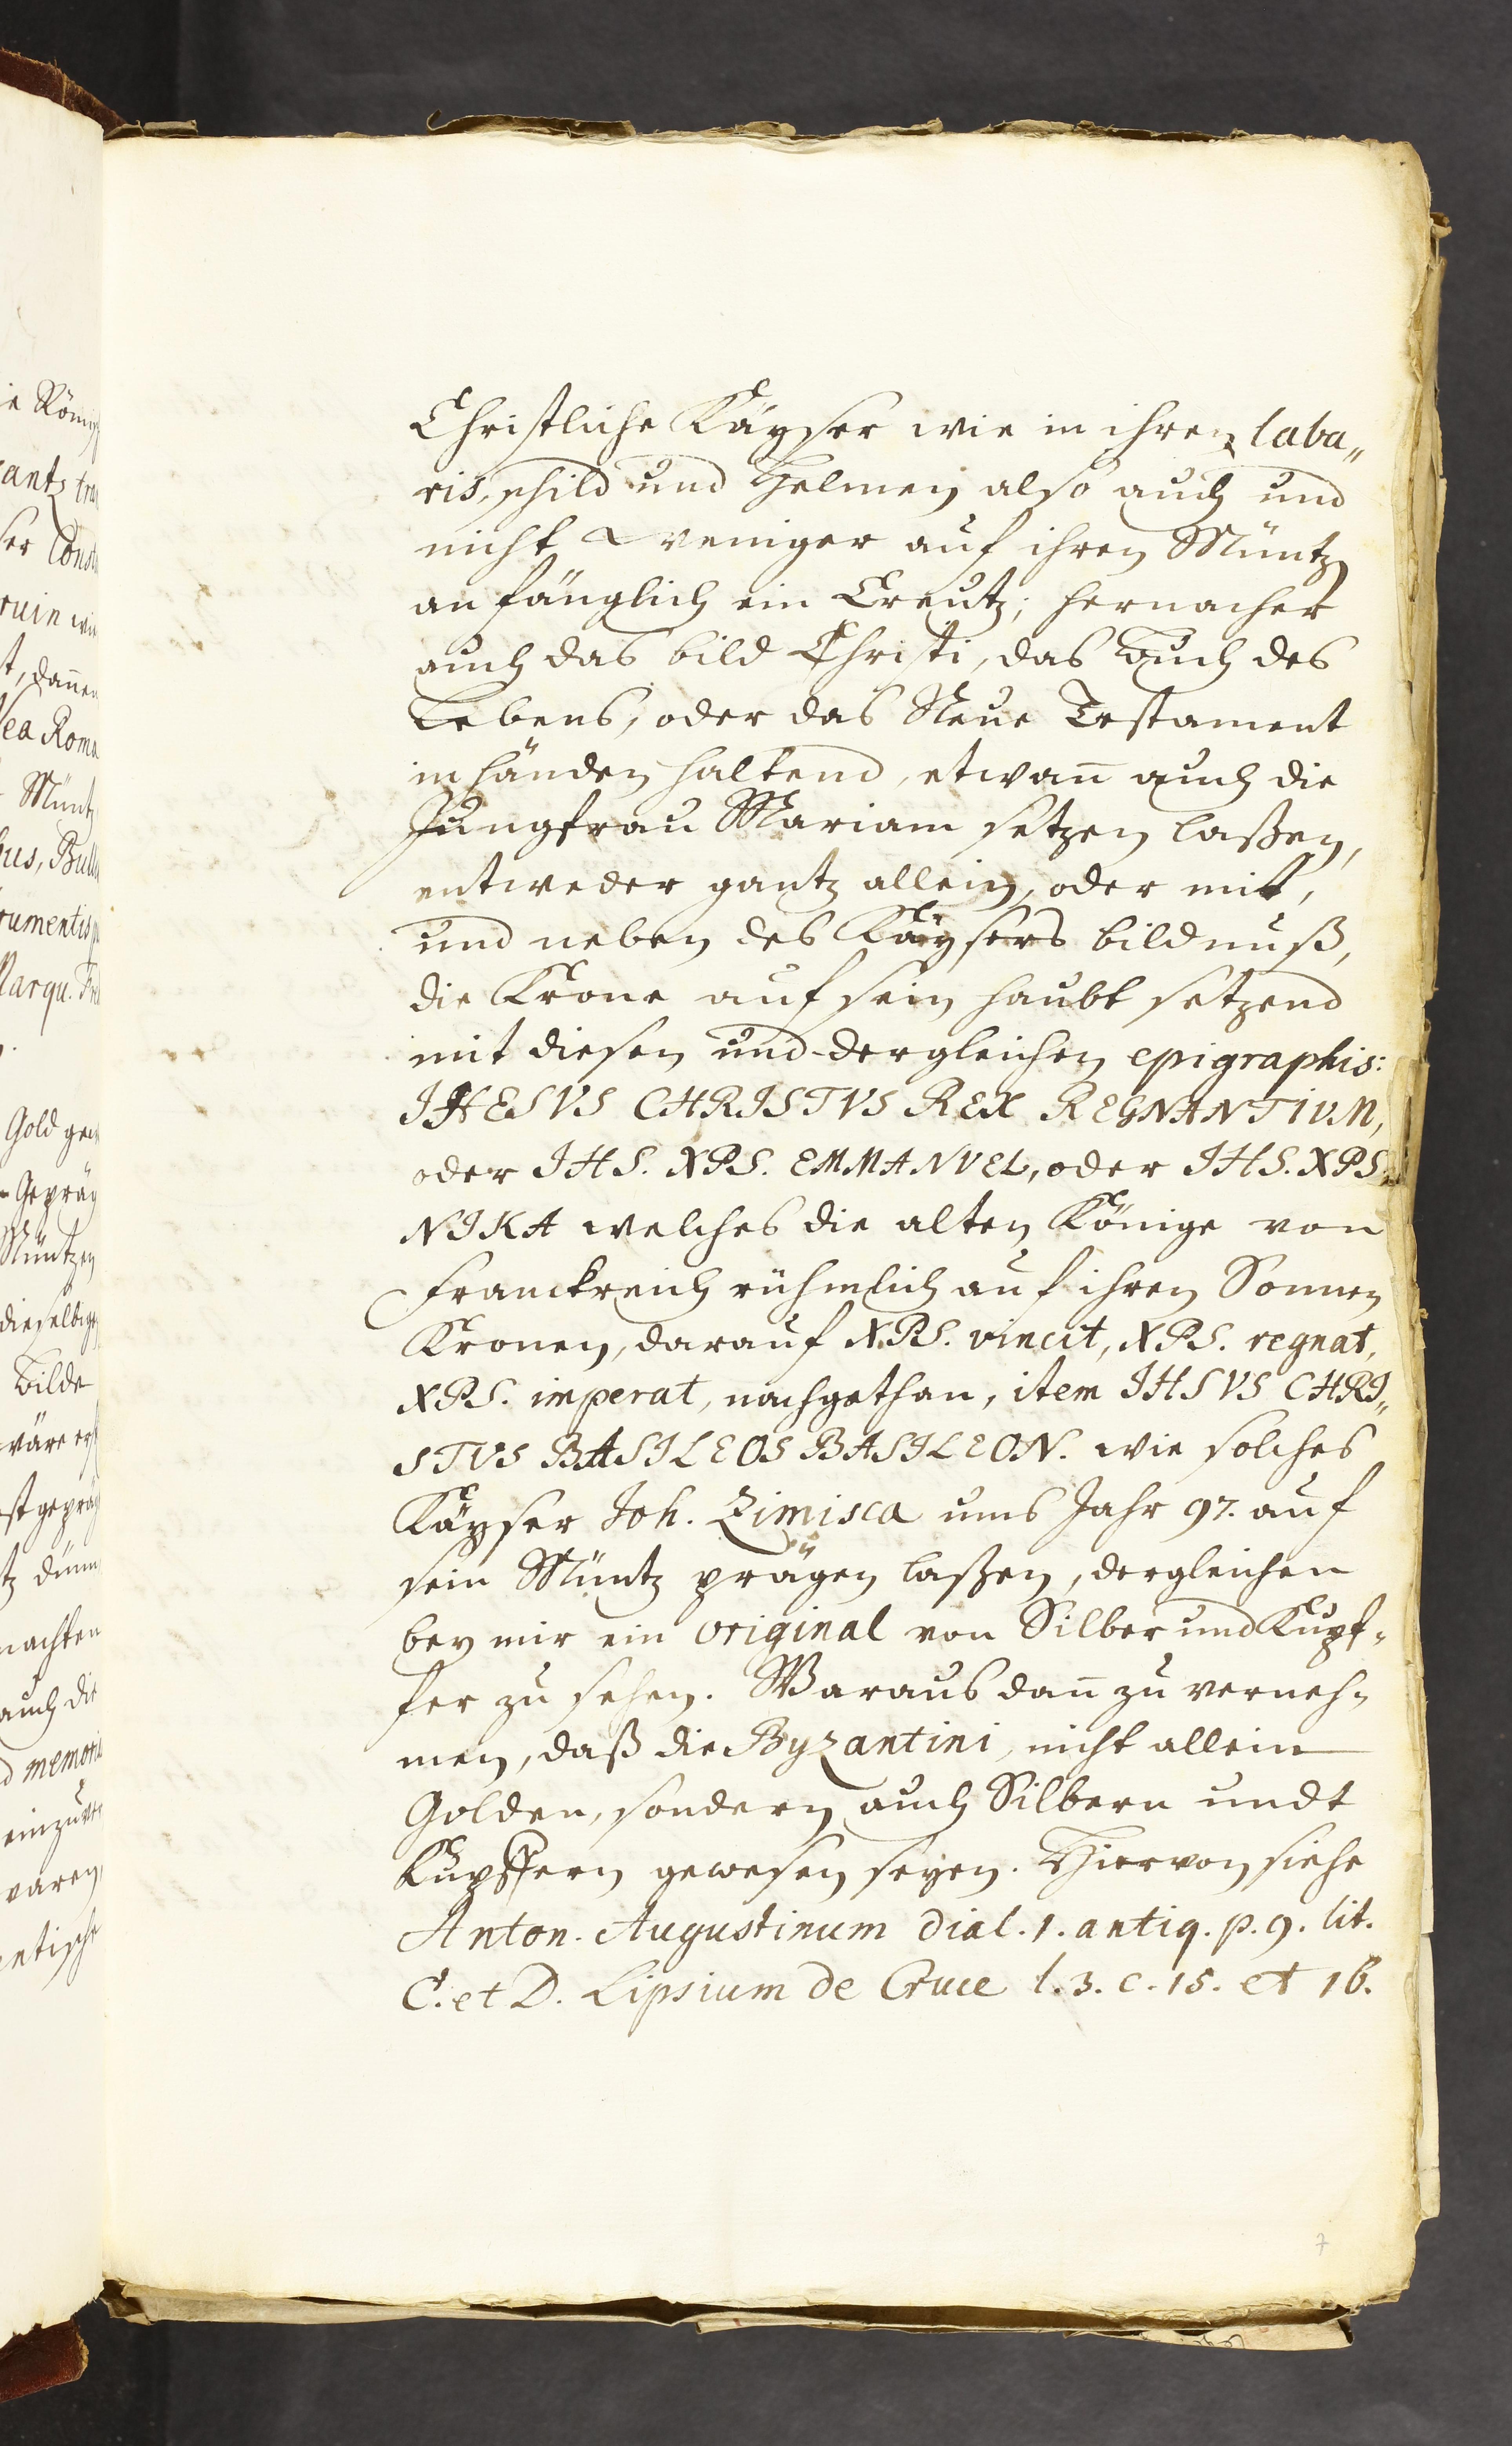 Christliche Käyser wie in ihren laba„
ris, schild und Helmen also auch und
nicht weniger auf ihren Müntzen
anfänglich ein Creutz; hernacher
auch das bild Christi, das Buch des
Lebens, oder das Neue Testament
in händen haltend, etwan̄ auch die
Jungfrau Mariam setzen laßen,
entweder gantz allein, oder mit,
und neben des Käysers bildnuß,
die Krone auf sein haubt setzend
mit diesen und dergleichen epigraphis:
IHESVS CHRISTVS REX REGNANTIUM,
oder IHS. XPS. EMMANVEL, oder IHS. XPS.
NIKA welches die alten Könige von
Franckreich rühmlich auf ihren Sonnen
Kronen, darauf XPS. vincit, XPS. regnat,
XPS. imperat, nachgethan, item IHSVS CHRI„
STVS BASILEOS BASILEON. wie solches
Käyser Joh. Zimisca ums Jahr 97. auf
sein Müntz prägen laßen, dergleichen
bey mir ein original von Silber und Kupf-
fer zu sehen. Woraus dan̄ zu verneh-
men, daß die Byzantini, nicht allein
Golden, sondern auch Silbern undt
Kupffern gewesen seyen. Hiervon siehe
Anton. Augustinum dial. 1. antiq. p. 9. lit.
C. et D. Lipsium de Cruce l. 3. c. 15. et 16.
7